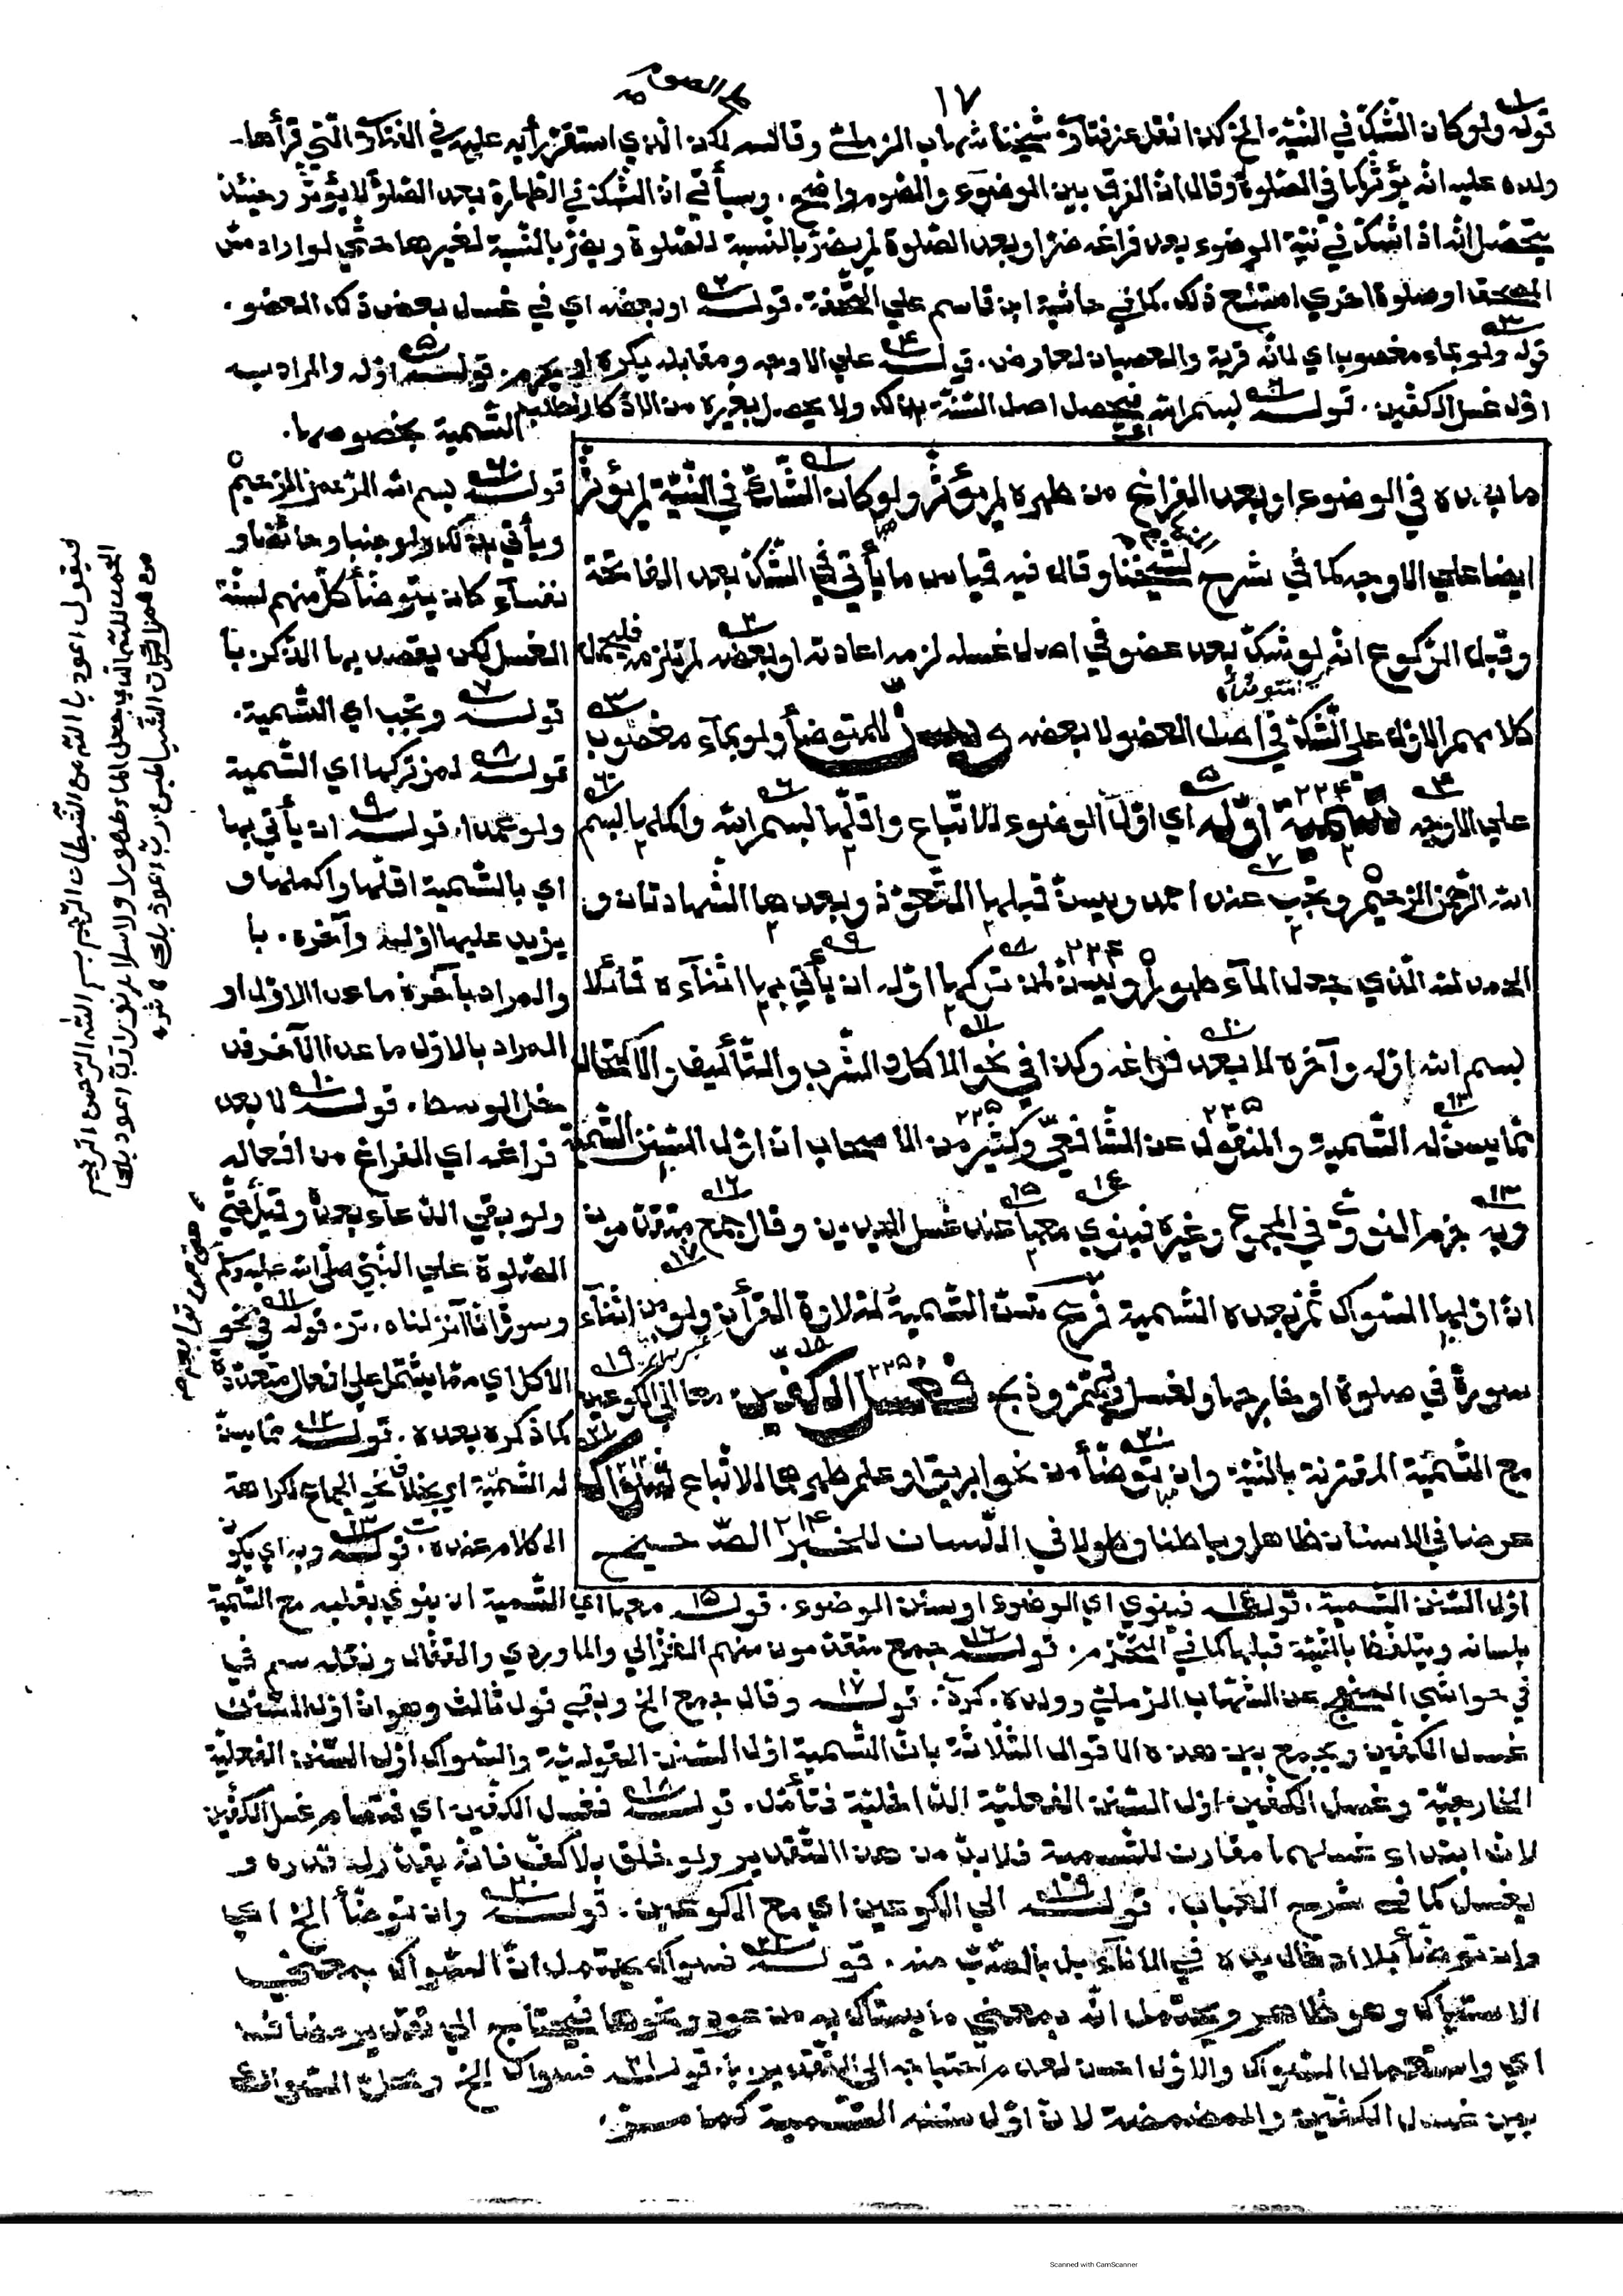 ١٧
قوله ولو كان الشك في النية الخ كذا نقل عن فتاوى شيخنا شهاب الرملي وقال لكن الذي استقر رأيه عليه في الفتاوى التي قرأها
ولده عليه انه يؤثر كما في الصلوة وقال ان الفرق بين الوضوء والصوم واضح . وسيأتي ان الشك في الطهارة بعد الصلوة لا يؤثر وحينئذ
يتحصل انه اذا شك في نية الوضوء بعد فراغه ضر او بعد الصلوة لم يضر بالنسبة للصلوة ويضر بالنسبة لغيرها حتى لو اراد مس
المصحف او صلوة اخرى امتنع ذلك . كما في حاشية ابن قاسم على التحفة . قوله او بعضه اي في غسل بعض ذلك العضو .
قوله ولو بماء مغصوب اي لانه قربة والعصيان لعارض . قوله على الاوجه ومقابله يكره او يحرم . قوله اوله والمراد به
اول غسل الكفين . قوله بسم الله فيحصل اصل السنة بذلك ولا يحصل بغيره من الاذكار لطلب
التسمية بخصوصها .
ما بعده في الوضوء او بعد الفراغ من طهره لم يؤثر ولو كان الشك في النية لم يؤثر
ايضا على الاوجه كما في شرح لشيخنا وقال فيه قياس ما يأتي في الشك بعد الفاتحة
وقبل الركوع انه لو شك بعد عضو في اصل غسله لزمه اعادته او بعضه لم تلزمه فليحمل
كلامهم الاول على الشك في اصل العضو لا بعضه وسن للمتوضأ ولو بماء مغصوب
على الاوجه تسمية اوله اي اول الوضوء للاتباع واقلها بسم الله واكملها بسم
الله الرحمن الرحيم وتجب عند احمد ويسن قبلها التعوذ وبعدها الشهادتان و
الحمد لله الذي جعل الماء طهورا ويسن لمن تركها اوله ان يأتي بها اثناءه قائلا
بسم الله اوله وآخره لا بعد فراغه وكذا في نحو الاكل والشرب والتأليف والاكتحال
مما يسن له التسمية والمنقول عن الشافعي وكثير من الاصحاب ان اول السنن التسمية
وبه جزم النووي في المجموع وغيره فينوي معها عند غسل اليدين وقال جمع متقدمون
ان اولها السواك ثم بعده التسمية فرع تسن التسمية لتلاوة القرآن ولو من اثناء
سورة في صلوة او خارجها ولغسل وتيمم وذبح فغسل الكفين معا الى الكوعين
مع التسمية المقترنة بالنية وان توضأ من نحو ابريق او علم طهرهما للاتباع فسواك
عرضا في الاسنان ظاهرا وباطنا وطولا في اللسان للخبر الصحيح
قوله بسم الله الرحمن الرحيم
ويأتي بذلك ولو جنبا وحائضا و
نفساء كان يتوضأ كل منهم لسنة
الغسل لكن يقصد بها الذكر . با
قوله وتجب اي التسمية .
قوله لمن تركها اي التسمية
ولو عمدا . قوله ان يأتي بها
اي بالتسمية اقلها واكملها و
يزيد عليها اوله وآخره . با
والمراد بآخره ما عدا الاول او
المراد بالاول ما عدا الآخر فد
خل الوسط . قوله لا بعد
فراغه اي الفراغ من افعاله
ولو بقي الدعاء بعده وقبل
الصلوة على النبي صلى الله عليه وسلم
وسورة انا انزلناه . قوله في نحو
الاكل اي مما يشتمل على افعال متعددة
كما ذكره بعده . قوله مما يسن
له التسمية اي بخلاف نحو الجماع لكراهة
الكلام عنده . قوله وبه اي بكون
فيقول اعوذ بالله من الشيطان الرجيم بسم الله الرحمن الرحيم
الحمد لله الذي جعل الماء طهورا والاسلام نورا رب اعوذ بك
من همزات الشياطين رب اعوذ بك
اول السنن التسمية . قوله فينوي اي الوضوء او سنن الوضوء . قوله معها اي التسمية ان ينوي بقلبه مع التسمية
بلسانه ويتلفظ بالنية قبلها كما في . قوله جمع متقدمون منهم الغزالي والماوردي والقفال ونقله سم
في حواشي المنهج عن الشهاب الرملي وولده . كردي . قوله وقال جمع الخ وبقي قول ثالث وهو ان اول السنن
غسل الكفين ويجمع بين هذه الاقوال الثلاثة بان التسمية اول السنن القولية والسواك اول السنن الفعلية
الخارجية وغسل الكفين اول السنن الفعلية الداخلية فتأمل . قوله فغسل الكفين اي فتمام غسل الكفين
لان ابتداء غسلهما مقارن للتسمية فلا بد من هذا التقدير ولو خلق بلا كف فانه يقدر له قدره و
يغسل كما في شرح العباب . قوله الى الكوعين اي مع الكوعين . قوله وان توضأ الخ اي
وان توضأ بلا ادخال يده في الاناء بل بالصب منه . قوله فسواك يحتمل ان السواك بمعنى
الاستياك وهو ظاهر ويحتمل انه بمعنى ما يستاك به من عود ونحوه فيحتاج الى تقدير مضاف
اي واستعمال السواك والاول احسن لعدم احتياجه الى التقدير . با . قوله فسواك الخ ومحل السواك
بين غسل الكفين والمضمضة لان اول سننه التسمية كما مر
Scanned with CamScanner